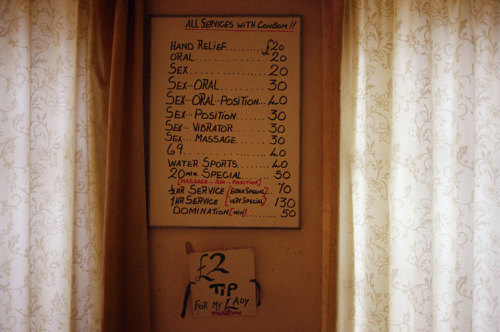 ALL SERVICES WITH CONDOM!!
HAND RELIEF........£20
ORAL..............20
SEX...............20
SEX-ORAL.........30
SEX-ORAL-POSITION...40
SEX-POSITION.......30
SEX-VIBRATOR.......30
SEX-MASSAGE.......30
69................40
WATER SPORTS.......40
20 MIN SPECIAL......50
[MASSAGE-SEX-POSITION]
½HR SERVICE [EXTRA SPECIAL] 70
1HR SERVICE [VERY SPECIAL] 130
DOMINATION [MIN].......50
£2
TIP
FOR MY LADY